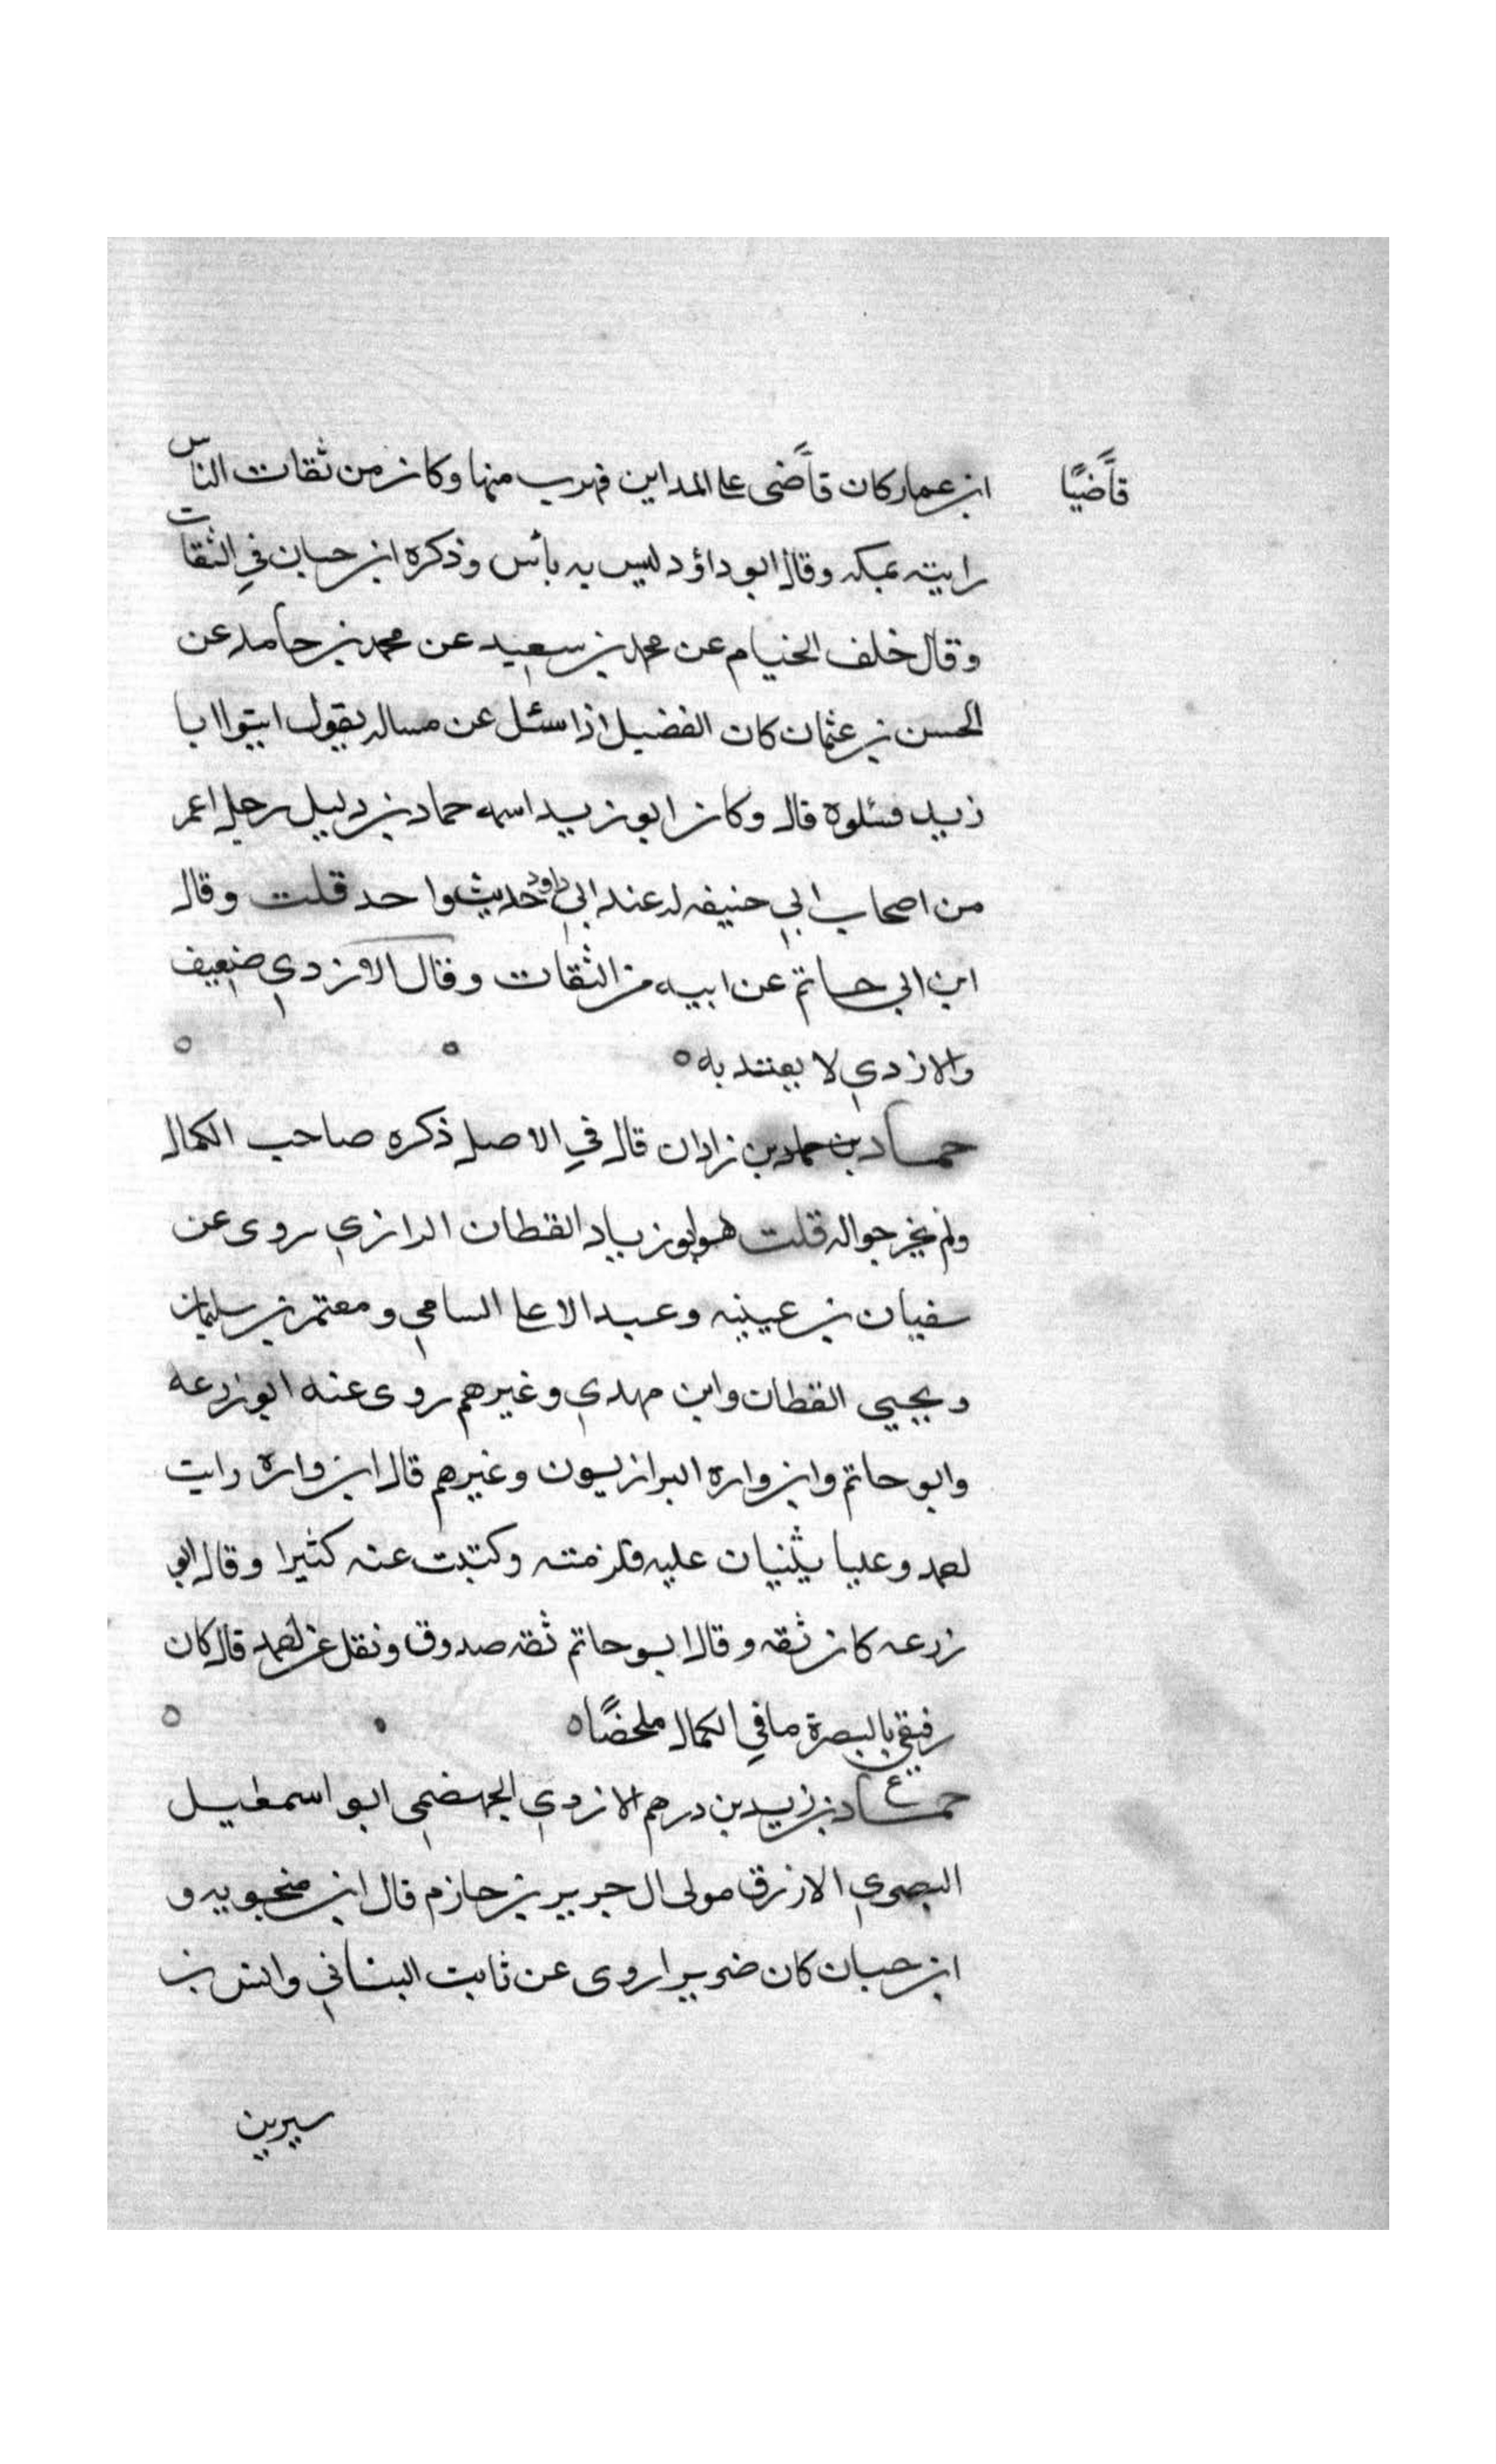 قاضيًا
ابن عمار كان قاضى على المداين فهرب منها وكان من ثقات الناس
رايته بمكه وقال ابو داؤد ليس به بأس وذكره ابن حبان في الثقات
وقال خلف الخيام عن محمد بن سعيد عن محمد بن حامد عن
الحسن بن عثمان كان الفضيل اذا سئل عن مساله يقول ايتوا ابا
زيد فسئلوه قال وكان ابو زيد اسمه حماد بن دليل رجل اعمر
من اصحاب ابي حنيفه له عند ابي داود حديث واحد قلت وقال
ابن ابي حاتم عن ابيه من الثقات وقال الازدي ضعيف
والازدي لا يعتد به
حماد بن حماد بن زاذان قال في الاصل ذكره صاحب الكمال
ولم يخرجوا له قلت هو ابو زياد القطان الرازي روى عن
سفيان بن عيينه وعبد الاعلا السامي ومعتمر بن سليمان
ويحيى القطان وابن مهدي وغيرهم روى عنه ابو زرعه
وابو حاتم وابن واره الرازيون وغيرهم قال ابن واره رايت
احمد وعليا يثنيان عليه فلزمته وكتبت عنه كثيرا وقال ابو
زرعه كان ثقه وقال ابو حاتم ثقه صدوق ونقل عن احمد قال كان
رفيقي بالبصرة ما في الكمال ملخصًا
ع
حماد بن زيد بن درهم الازدي الجهضمي ابو اسمعيل
البصري الازرق مولى ال جرير بن حازم قال ابن منجويه و
ابن حبان كان ضريرا روى عن ثابت البناني وانس بن
سيرين